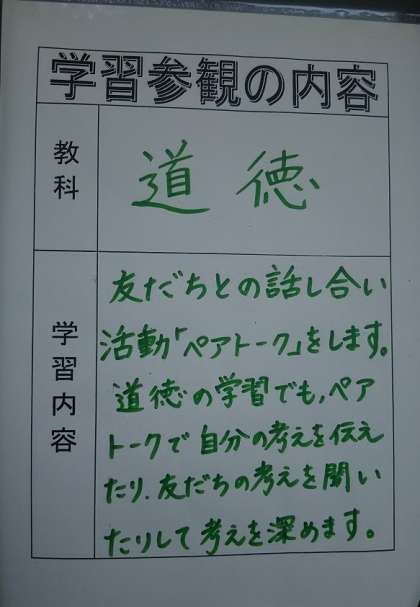 学習参観の内容
教科
道徳
学習内容
友だちとの話し合い
活動「ペアトーク」をします。
道徳の学習でも、ペア
トークで自分の考えを伝え
たり、友だちの考えを聞い
たりして考えを深めます。